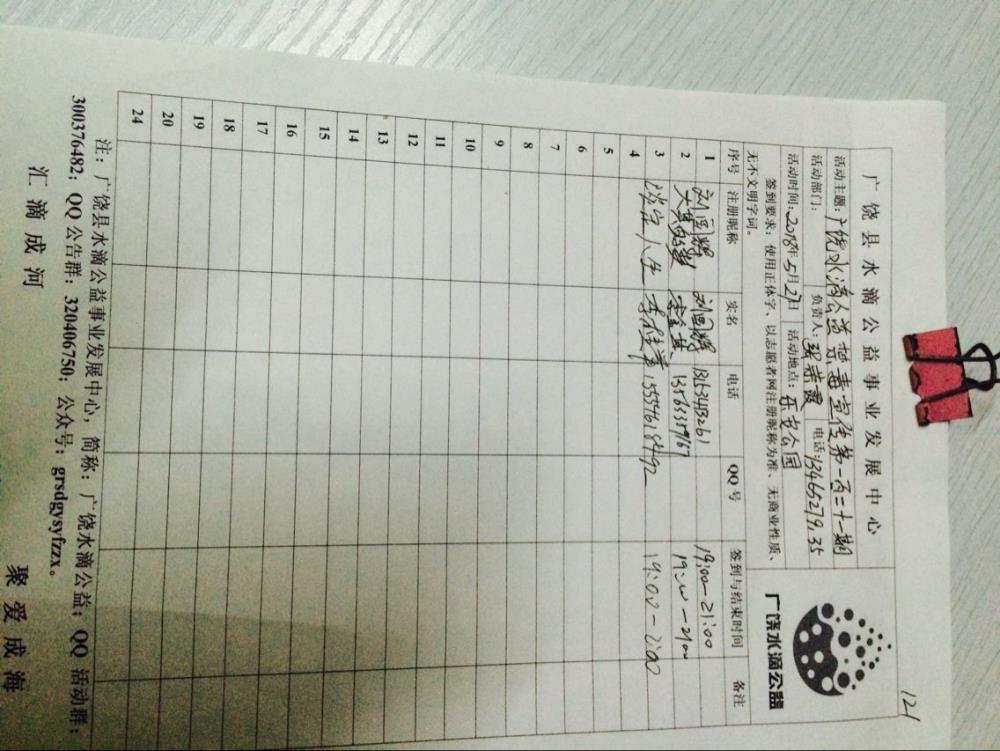 121
广饶县水滴公益事业发展中心
广饶水滴公益
活动主题:广饶水滴公益禁毒宣传第一百二十一期
活动部门: 负责人: 电话:13465279135
活动时间:2018年5月27日 活动地点:乐安公园
签到要求:使用正体字、以志愿者网注册昵称为准、无商业性质、
无不文明字词。
序号 注册昵称 实名 电话 QQ号 签到与结束时间 备注
1 刘国辉 刘国辉 19:00-21:00
2 13563359767 19:00-2100
3 人生 15554618492 19:00-21:00
4
5
6
7
8
9
10
11
12
13
14
15
16
17
18
19
20
24
注:广饶县水滴公益事业发展中心,简称:广饶水滴公益;QQ 活动群:
300376482;QQ 公告群:320406750;公众号:grsdgysyfzzx。
汇滴成河 聚爱成海